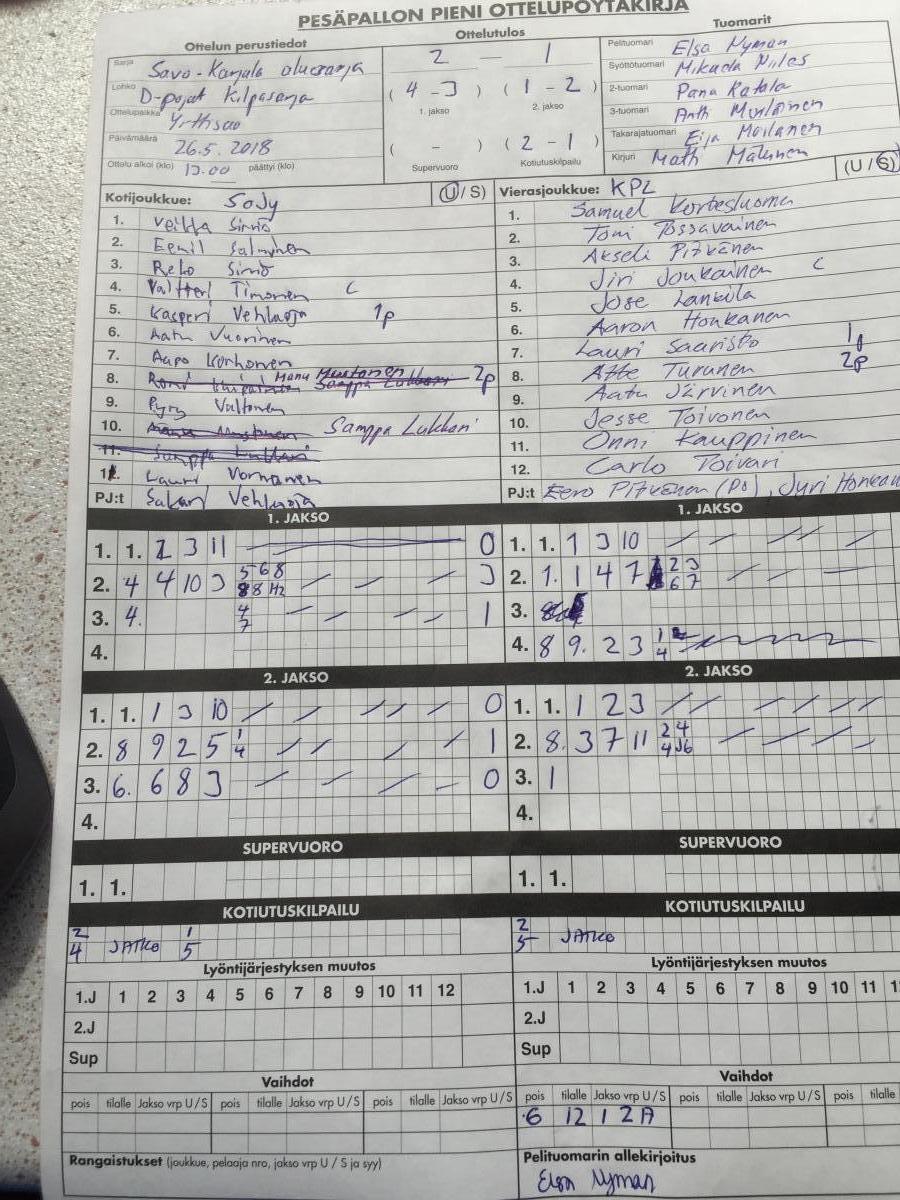 PESÄPALLON PIENI OTTELUPÖYTÄKIRJA
Ottelun perustiedot
Sarja Savo-Karjala aluesarja
Lohko D-pojat Kilpasarja
Ottelupaikka
Päivämäärä 26.5.2018
Ottelu alkoi (klo) 13.00 päättyi (klo)
Ottelutulos
2 — 1
( 4 - 3 ) ( 1 - 2 )
1. jakso 2. jakso
( - ) ( 2 - 1 )
Supervuoro Kotiutuskilpailu
Tuomarit
Pelituomari Elsa Nyman
Syöttötuomari
2-tuomari
3-tuomari
Takarajatuomari Eija Moilanen
Kirjuri
Kotijoukkue: SoJy (U / S)
1. Sirviö
2. Eemil Salminen
3. Reko Sirviö
4. Valtteri Timonen C
5. Kasperi Vehlaoja 1p
6. Aatu Vuorinen
7. Aapo Korhonen
8. Manu Mustonen 2p
9. Pyry Valtonen
10. Samppa Lukkari
11.
12. Lauri Vornanen
PJ:t Sakari Vehlaoja
Vierasjoukkue: KPL (U / S)
1. Samuel Kortesluoma
2. Tomi Tossavainen
3. Akseli Pitkänen
4. Jiri Joukainen C
5. Jose Lankila
6. Aaron Honkanen
7. Lauri Saaristo 1p
8. Atte Turunen 2p
9. Aatu Järvinen
10. Jesse Toivonen
11. Onni Kauppinen
12. Carlo Toivari
PJ:t Eero Pitkänen (PJ), Jyri Honkan
1. JAKSO
1. 1. 2 3 11 0
2. 4 4 10 3 5 6 8 3
8 8 Hz
3. 4. 4 1
7
4.
1. JAKSO
1. 1. 1 3 10
2. 1. 1 4 7 2 3
6 7
3.
4. 8 9. 2 3 1
4
2. JAKSO
1. 1. 1 3 10 0
2. 8 9 2 5 1 1
4
3. 6. 6 8 3 0
4.
2. JAKSO
1. 1. 1 2 3
2. 8. 3 7 11 2 4
4 J6
3. 1
4.
SUPERVUORO
1. 1.
SUPERVUORO
1. 1.
KOTIUTUSKILPAILU
2 1
4 JATKO 5
KOTIUTUSKILPAILU
2
5 JATKO
Lyöntijärjestyksen muutos
1.J 1 2 3 4 5 6 7 8 9 10 11 12
2.J
Sup
Lyöntijärjestyksen muutos
1.J 1 2 3 4 5 6 7 8 9 10 11 1
2.J
Sup
Vaihdot
pois tilalle Jakso vrp U / S pois tilalle Jakso vrp U / S pois tilalle Jakso vrp U / S
Vaihdot
pois tilalle Jakso vrp U / S pois tilalle Jakso vrp U / S pois tilalle
6 12 1 2A
Rangaistukset (joukkue, pelaaja nro, jakso vrp U / S ja syy)
Pelituomarin allekirjoitus
Elsa Nyman